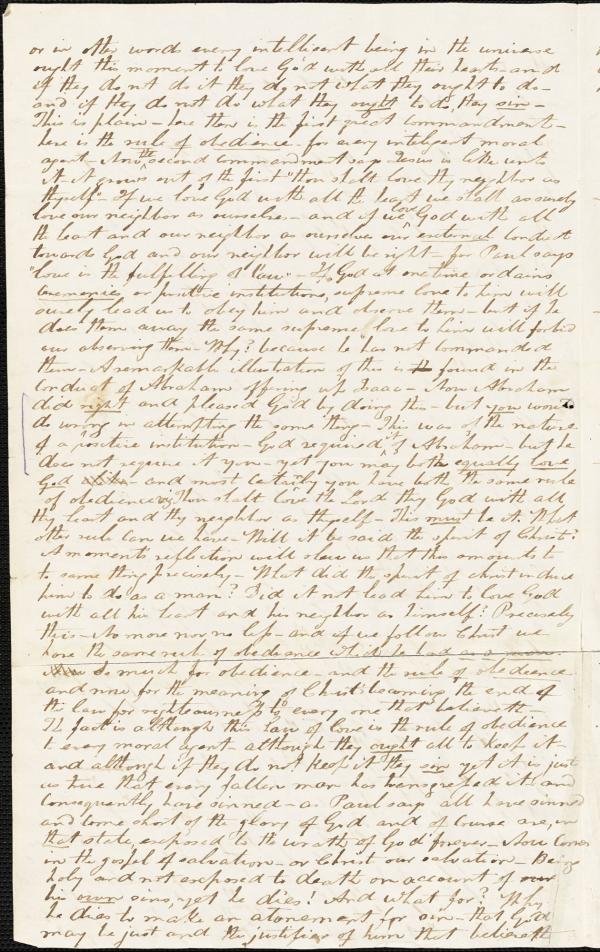 or in other words every intelligent being in the universe
ought this moment to love God with all their hearts - and
if they do not do it they do not what they ought to do -
and if they do not do what they ought to do, they sin -
This is plain - here then is the first great commandment -
here is the rule of obedience - for every inteligent moral
agent - And the second commandment says Jesus is like unto
it it grows out of the first "thou shalt love thy neighbor as
thyself - If we love God with all the heart we shall as surely
love our neighbor as ourselves - and if we love God with all
the heart and our neighbor as ourselves our external conduct
towards God and our neighbor will be right - for Paul says
"love is the fulfilling of law" - If God at one time ordains
ceremonies or positive institutions, supreme love to him will
surely lead us to obey him and observe them - but if he
does them away the same supreme love to him will forbid
our observing them - Why? because he has not commanded
them - A remarkable illustration of this is found in the
conduct of Abraham offring up Isaac - Now Abraham
did right and pleased God by doing this - but you would
do wrong in attempting the same thing - This was of the nature
of a positive institution - God required it of Abraham - but he
does not require it of you - yet you may both equally love
God - and most certainly you have both the same rule
of obedience viz, Thou shalt love the Lord thy God with all
thy heart and thy neighbor as thyself - This must be it. What
other rule can we have - Will it be said the spirit of Christ?
A moments reflection will show us that this amounts to
to same thing precisely - What did the spirit of christ induce
him to do as a man? Did it not lead him to love God
with all his heart and his neighbor as himself? Precisely
this - No more nor no less - and if we follow Christ we
have the same rule of obedience which he had as a man.
So much for obedience - and the rule of obedience
and now for the meaning of Christ becoming the end of
the law for righteousness to every one that believeth -
The fact is although this law of love is the rule of obedience
to every moral agent although they ought all to keep it -
and although if they do not keep it they sin yet it is just
as true that every fallen man has transgressed it and
consequently have sinned - as Paul says all have sinned
and come short of the glory of God and of course are, in
that state, exposed to the wrath of God forever - Now comes
in the gospel of salvation - or Christ our salvation - Being
holy and not exposed to death on account of
his own sins, yet he dies! And what for? Why
he dies to make an atonement for sin - that God
may be just and the justifier of him that believeth